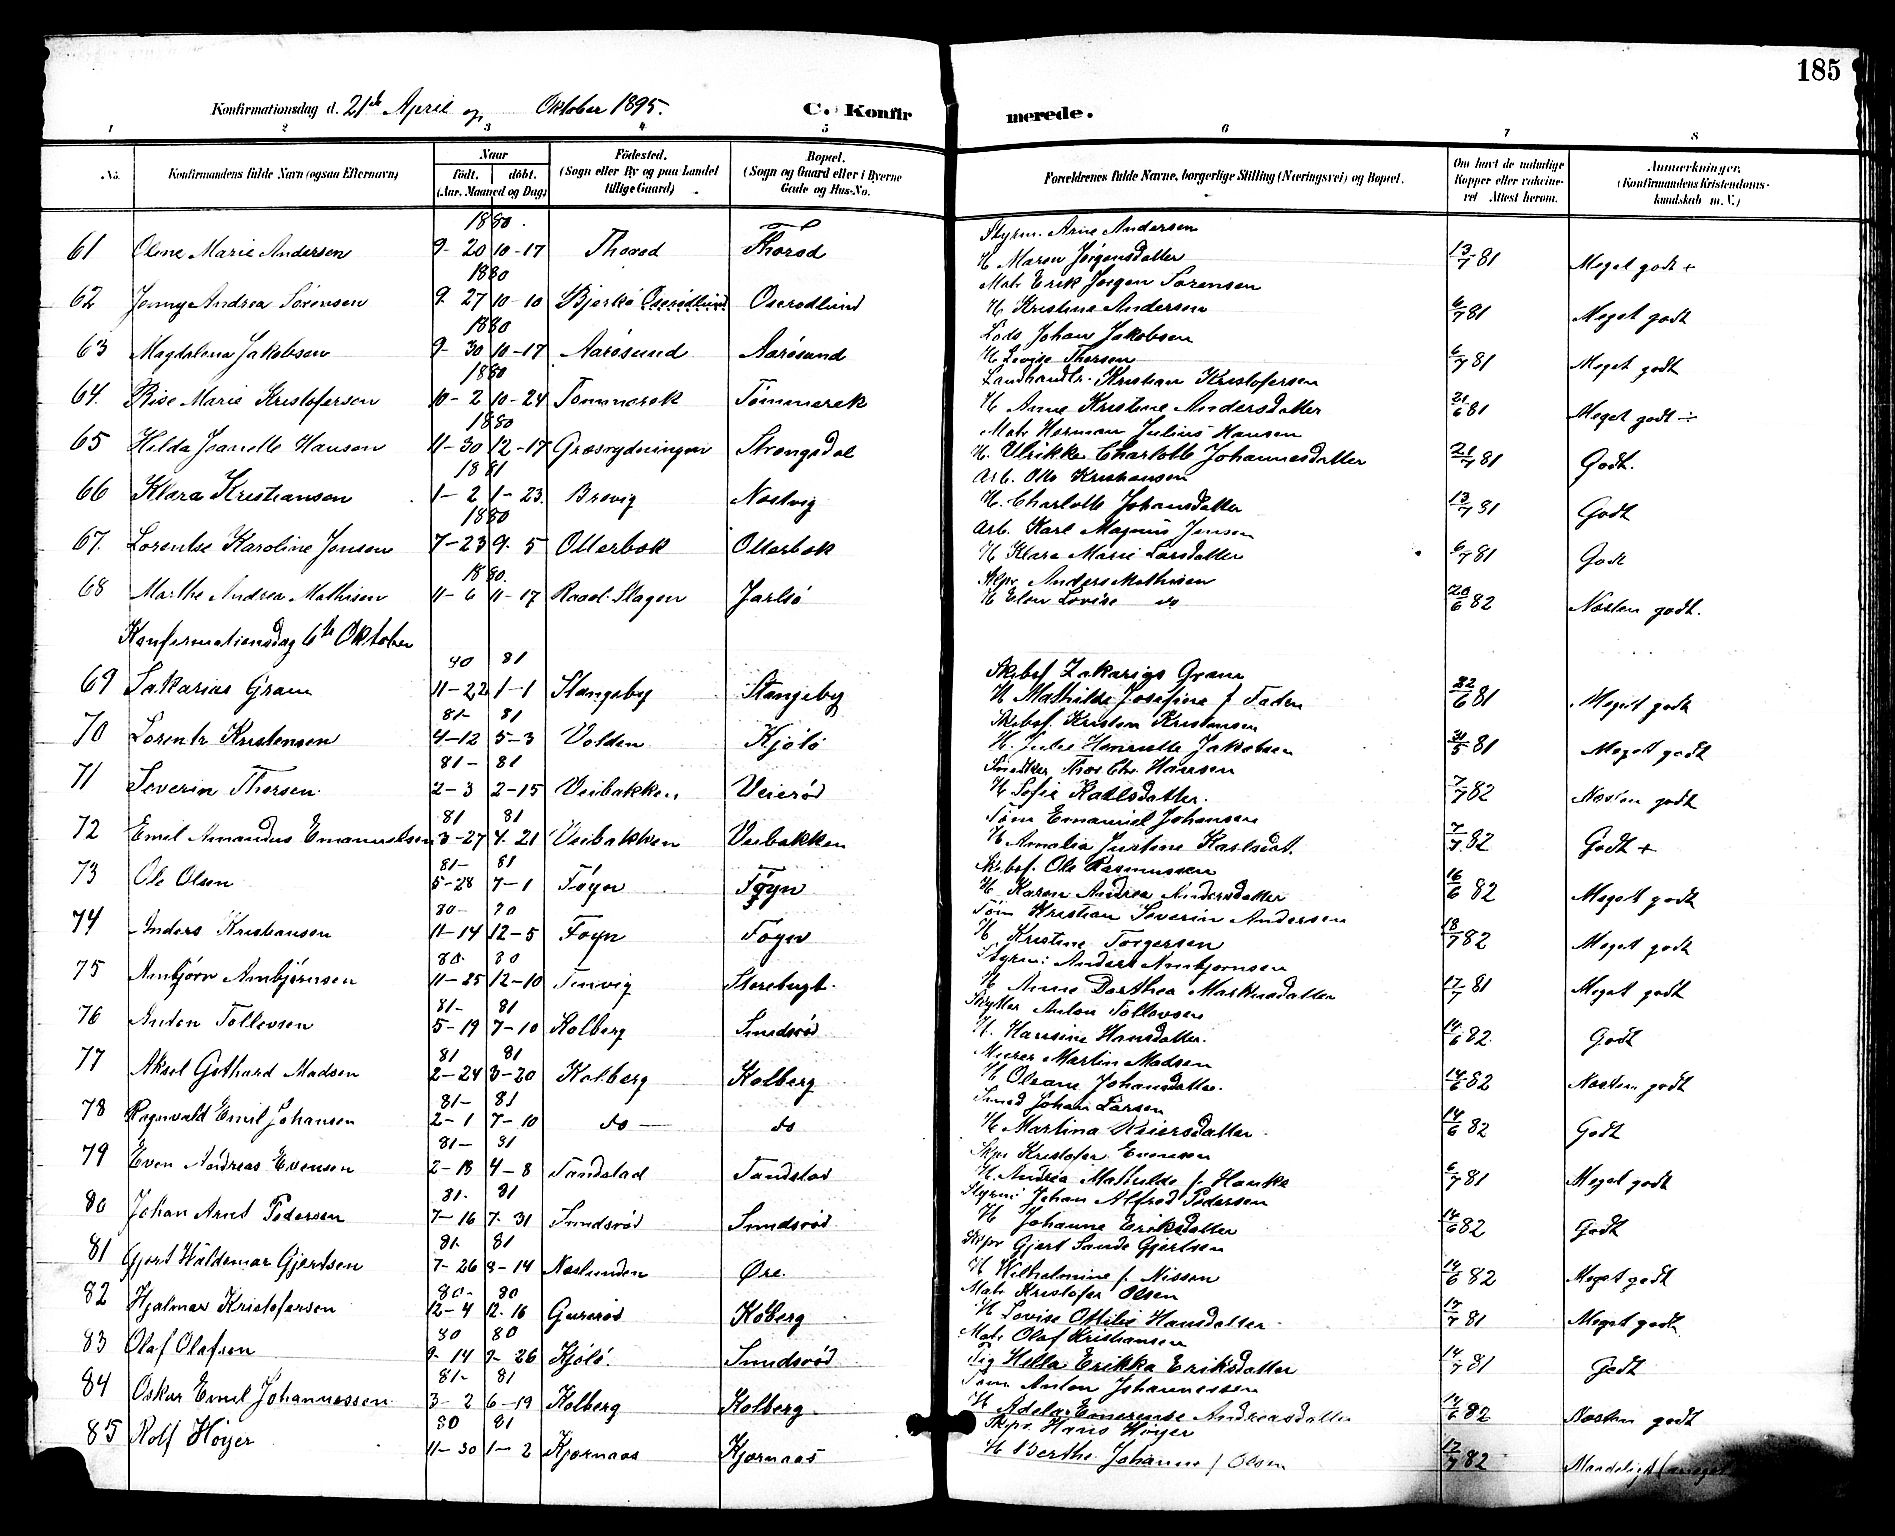 185
Konfirmationsdag d. 21de April og Oktober 1895. C. Konfirmerede.
1 2 3 4 5 6 7 8
No. Konfirmandens fulde Navn (ogsaa Efternavn) Naar født. døbt. (Aar, Maaned og Dag) Fødested. (Sogn eller By og paa Landet tillige Gaard) Bopæl. (Sogn og Gaard eller i Byerne Gade og Hus-No. Forældrenes fulde Navne, borgerlige Stilling (Næringsvei) og Bopæl. Om havt de naturlige Kopper eller vaccineret Attest herom. Anmærkninger. (Konfirmandens Kristendomskundskab m. V.)
1880. Styrm. Arne Andersen
61 Olene Marie Andersen 9-20 10-17 Thorød Thorød H Maren Jørgensdatter 13/7 81 Meget godt +
1880 Matr Erik Jørgen Sørensen
62 Jenny Andrea Sørensen 9-27 10-10 Bjerkø Oserødlund Oserødlund H Kristine Andersen 6/7 81 Meget godt
1880 Lods Johan Jakobsen
63 Magdalena Jakobsen 9-30 10-17 Aarøsund Aarøsund H Lovise Thorsen 6/7 81 Meget godt
1880 Landhandlr. Kristian Kristofersen
64. Rise Marie Kristofersen 10-2 10-24 Tømmerek Tømmerek H Anne Kristine Andersdatter 21/6 81 Meget godt ÷
1880 Matr Herman Julius Hansen
65 Hilda Jeanette Hansen 11-30 12-17 Græsrydningen Strengsdal H. Ulrikke Charlotte Johannesdatter 21/7 81 Godt.
1881 Arb. Otto Kristiansen
66 Klara Kristiansen 1-2 1-23. Brevig Nestvig H. Charlotte Johansdatter 13/7 81 Godt
1880 Arb. Karl Magnus Jensen
67. Lorentse Karoline Jensen 7-23 9-5 Ollerbak Ollerbak H Klara Marie Larsdatter 6/7 81 Godt
1880. Skpr Anders Mathisen
68 Marthe Andrea Mathisen 11-6 11-17 Slagen Jarlsø H Elen Lovise do 20/6 82 Næsten godt.
Konfirmationsdag 6te Oktober
81 Skibsf. Zakarias Gram
69 Sakarias Gram 11-22 1-1 Stangeby Stangeby H Mathilde Josefine f Faden 22/6 81 Meget godt
81- 81 Skibsf. Kristen Kristensen
70 Lorentz Kristensen 4-12 5-3 Volden Kjøle H. Julie Henriette Jakobsen 31/5 81 Meget godt
81- 81 Snedker Thor Chr. Hansen
71 Severin Thorsen. 2-3 2-15 Veibakken Veierød H Sofie Karlsdatter. 7/7 82 Næsten godt
81 81 Tøm Emanuel Johansen
72 Emil Amandus Emanuelsen 3-27 4-21 Veibakken Veibakken H Amalia Justine Karlsdat. 7/7 82 Godt +
81- 81 Skibsf. Ole Rasmussen
73 Ole Olsen 5-28 7-1 Føyn Føyn H Karen Andrea Andersdatter 16/6 82 Meget godt
80- 80 Tøm Kristian Severin Andersen
74 Anders Kristiansen 11-14 12-5 Føyn Føyn H Kristine Torgersen 18/7 82 Meget godt
80- 80 Styrm: Anders Ambjørnsen
75 Ambjørn Ambjørnsen 11-25 12-10 Tenvig Storebugt. H Anne Dorthea Markusdatter 17/7 81 Meget godt
81- 81 Anton Tollevsen
76 Anton Tollevsen 5-19 7-10 Kolberg Smidsrød H. Hansine Hansdatter. 14/6 82. Godt
81 81 Murer Martin Madsen
77 Aksel Gothard Madsen 2-24 3-20 Kolberg Kolberg H Oleane Johansdatter. 14/6 82 Næsten godt
81- 81 Smed Johan Larsen
78 Ragnvald Emil Johansen 2-1 7-10 do — do H Martina Reiersdatter. 14/6 82 Godt
81- 81 Skpr Kristofer Evensen
79 Even Andreas Evensen 2-18 4-8 Sandstad Sandstad H. Andrea Mathilde f. Hanke 6/7 81 Meget godt
81. 81 Styrm: Johan Alfred Pedersen
80 Johan Arnt Pedersen 7-16 7-31 Smidsrød Smidsrød H Johanne Eriksdatter 14/6 82 Godt
81- 81 Skpr Gjert Sande Gjertsen
81 Gjert Waldemar Gjertsen 7-26 8-14 Øre. H Wilhelmine f. Nissen 14/6 82 Meget godt
80- 80 Matr Kristofer Olsen
82 Hjalmar Kristofersen 12-4 12-16 Kolberg H Lovise Ottilie Hansdatter 17/7 81 Meget godt
80 80 Matr Olaf Kristiansen
83 Olaf Olafsen 9-14 9-26 Kjøle. Smidsrød Hella Erikka Eriksdatter 14/7 81 Godt
81- 81 Tøm. Anton Johannessen
84 Oskar Emil Johannessen 3-2 6-19 Kolberg Kolberg H Adela Emerentse Andreasdatter 14/6 82 Næsten godt
80 81 Skpr. Hans Høyer
85 Rolf Høyer 11-30 1-2 Kjærnaas Kjærnaas H Berthe Johanne f Olsen 17/7 82 Maadeligt (meget